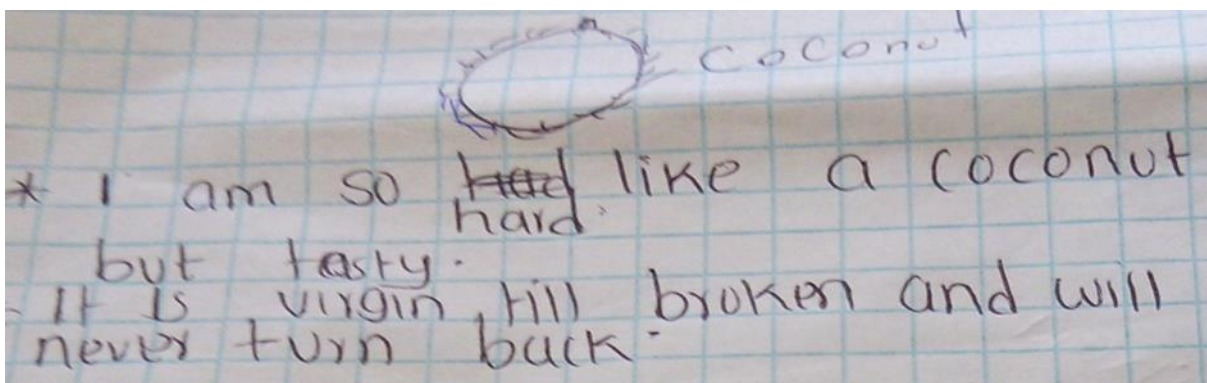 coconut
* I am so hard. like a coconut
but tasty.
- It is virgin till broken and will
never turn back.